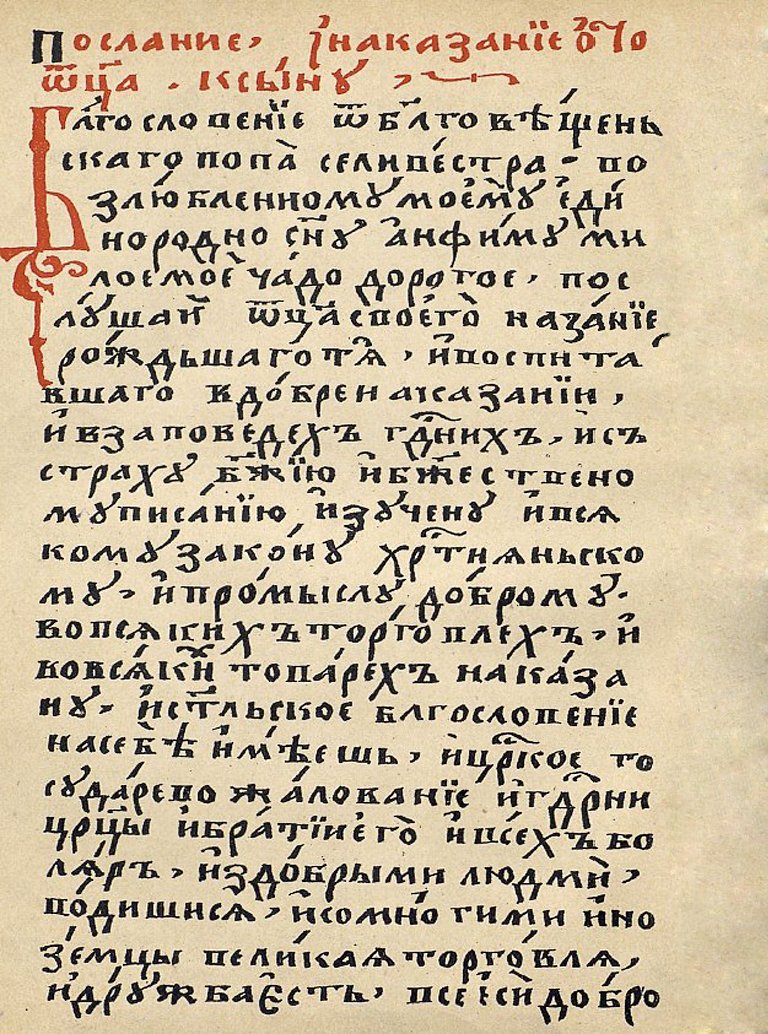 Послание, и наказание ѿ
ѿца . к сыну ,
Благословение ѿ блговѣщень
скаго попа селивестра - во
злюбленному моему еди
нородно сну анфиму ми
лое мое чадо дорогое , пос
лушай ѿца своего наказание
рождьшаго тя , и воспита
вшаго в добре наказании ,
и в заповедехъ гднихъ , и съ
страху бжию и бжествено
му писанию изучену и вся
кому закону хртияньско
му , и промыслу доброму .
во всякихъ торговлехъ , и
во всяки товарехъ наказа
ну , и стльское блгословение
на себѣ имѣешь , и црское го
сударево жалование и гдрни
црцы и братии его и всехъ бо
ляръ , и з добрыми людми ,
водишися , и со многими ино
земцы великая торговля ,
и дружба есть , все еси добро